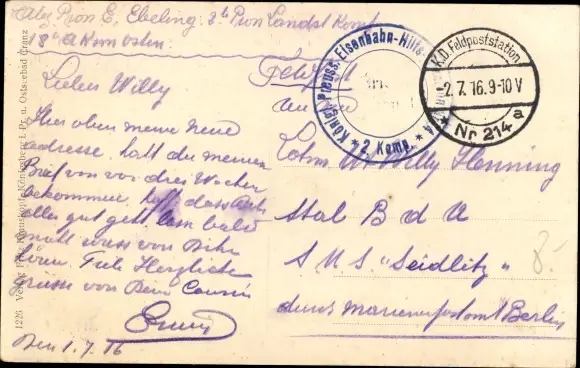 Abs. Pion E. Ebeling. 3te Pion Landst Komp
18 Akorn osten.
Lieber Willy
Hier oben meine neue
adresse. hast du meinen
Brief von vor drei Wochen
bekommen, hoff dass Euch
alles gut geht. Lass bald
mall was von Dir
hören. Viele Herzliche
grüsse von Dein Cousin
Erwin
Den 1.7.16
1226 Verlag Fritz Krauskopf, Königsberg i. Pr. u. Ostseebad Cranz
Feldpost
Königl. Preuss. Eisenbahn-Hilfs
* 2 Komp. *
K.D. Feldpoststation
-2.7.16.9-10V
* Nr 214 a
Willy Henning
Stab B d A
S M S "Seidlitz"
durch Marinepostamt Berlin
8.-